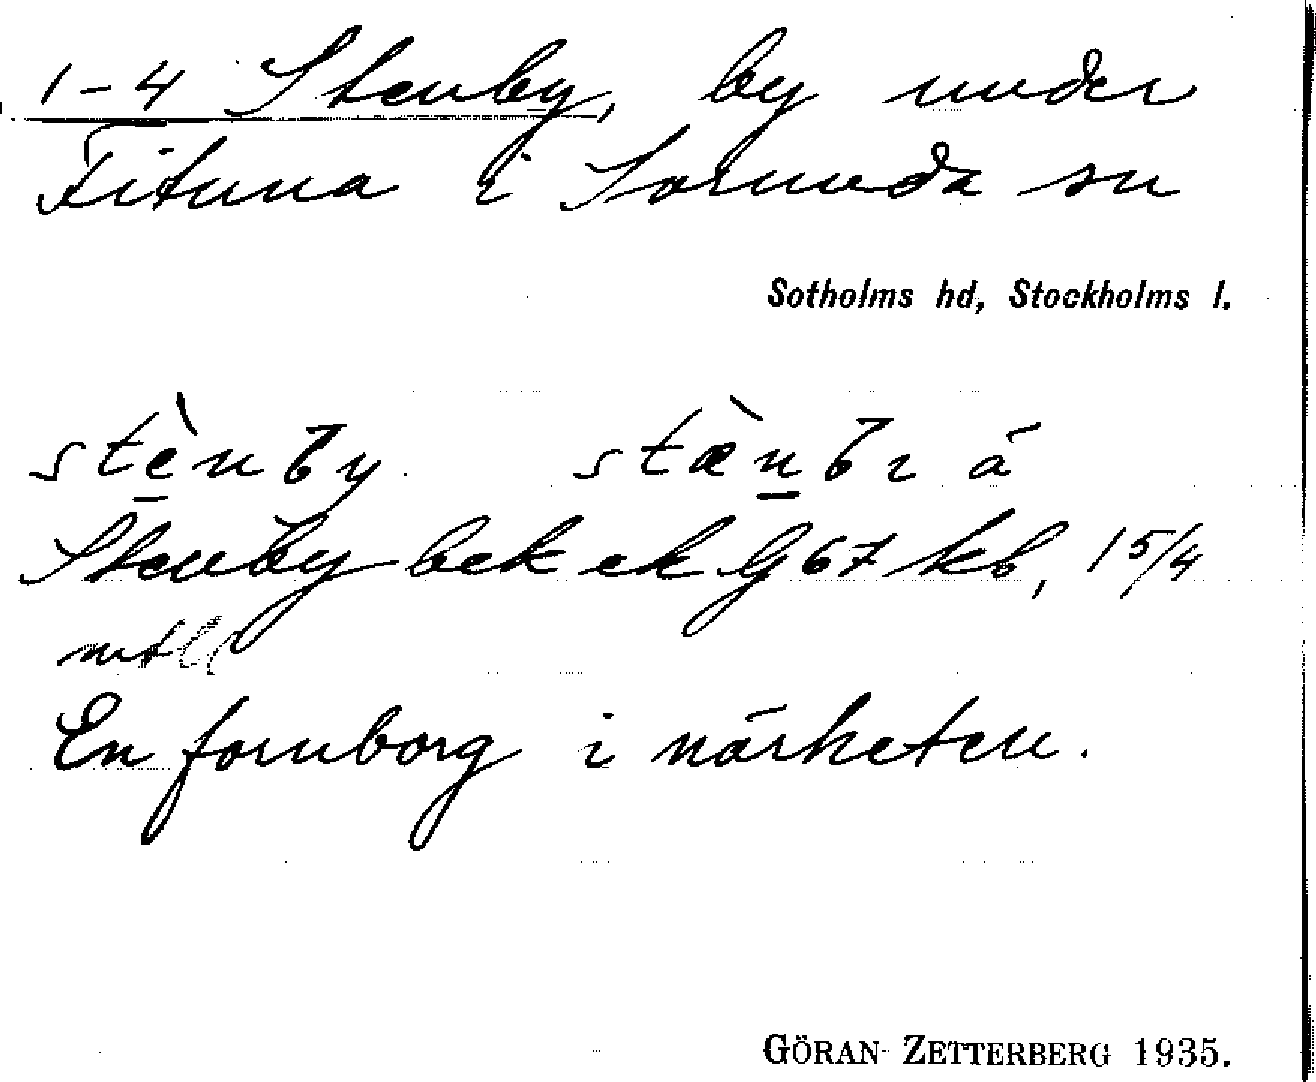 1-4 Stenby, by under
Fituna i Sorunda sn
Sotholms hd, Stockholms l.
stènby stænbi å
Stenby bek ek G 67 kb, 15/4
mtl
En fornborg i närheten.
GÖRAN ZETTERBERG 1935.